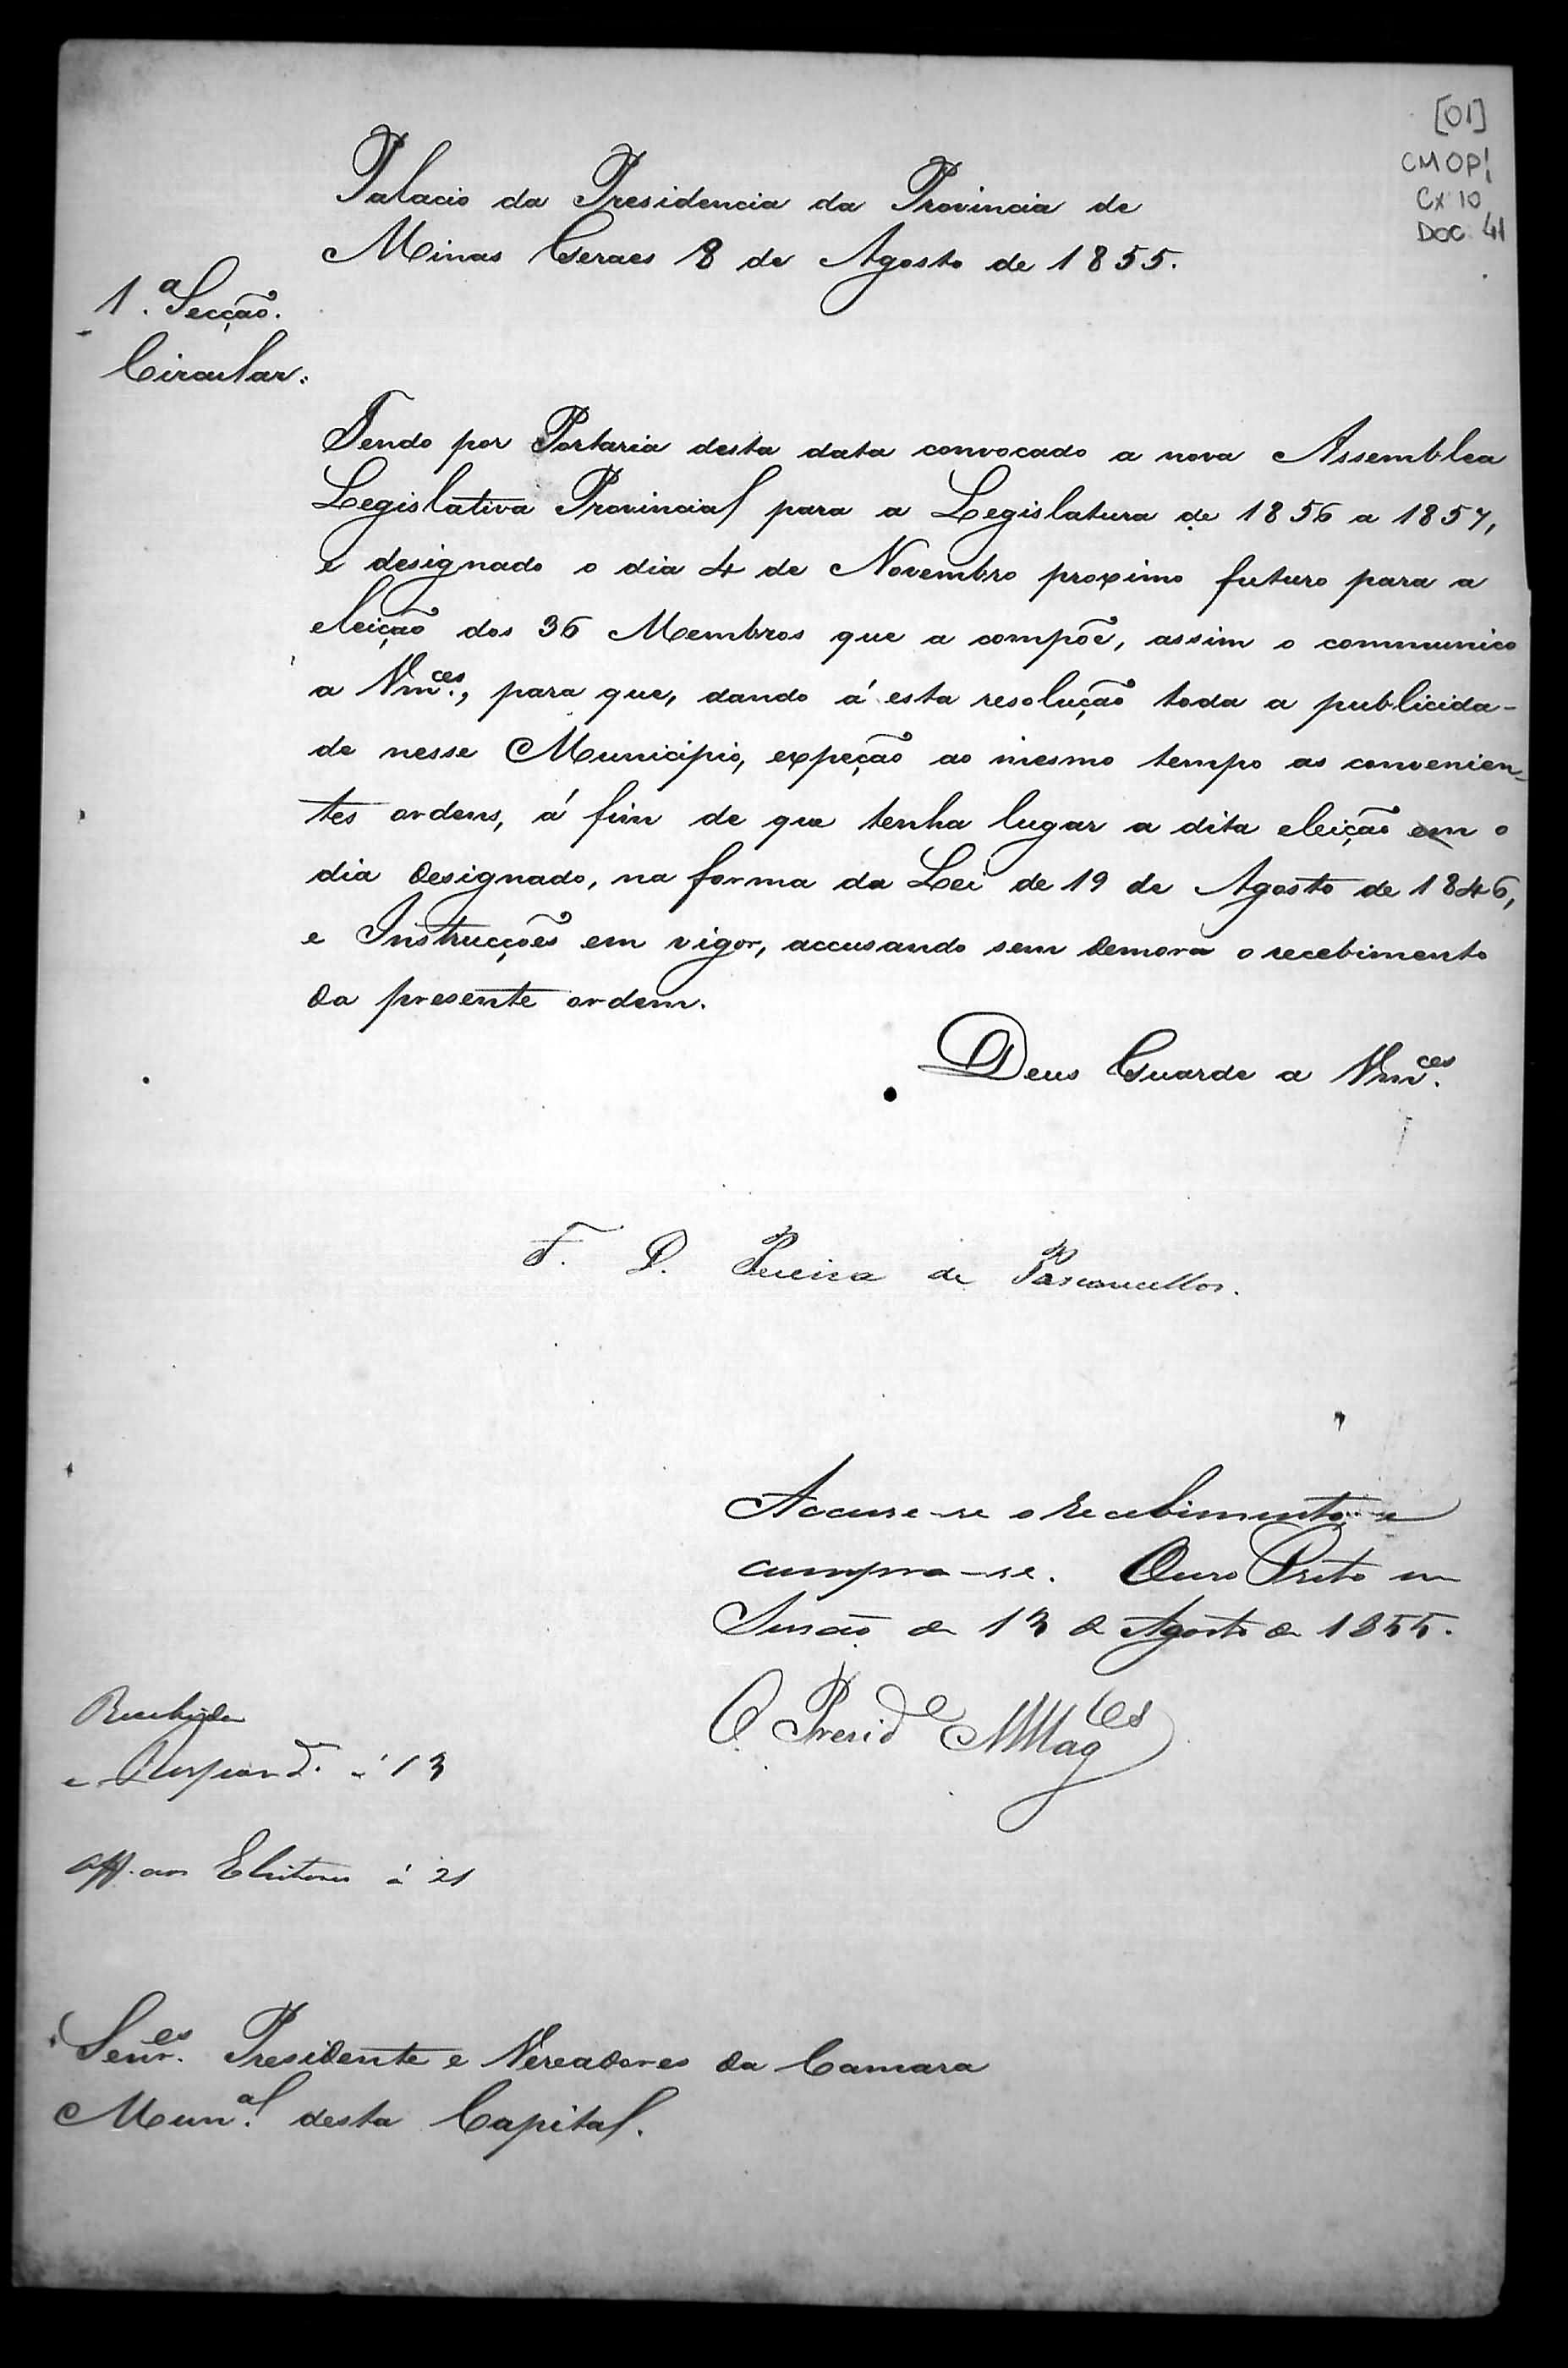 [01]
CMOP!
Cx 10
DOC. 41
Palacio da Presidencia da Provincia de
Minas Geraes 8 de Agosto de 1855.
1.ª Secção.
Circular.
Tendo por Portaria desta data convocado a nova Assemblea
Legislativa Provincial para a Legislatura de 1856 a 1857,
e designado o dia 4 de Novembro proximo futuro para a
eleição dos 36 Membros que a compõe, assim o communico
a Vm.ces, para que, dando á esta resolução toda a publicida-
de nesse Municipio, expeção ao mesmo tempo as convenien-
tes ordens, á fim de que tenha lugar a dita eleição em o
dia designado, na forma da Lei de 19 de Agosto de 1846,
e Instrucções em vigor, accusando sem demora o recebimento
da presente ordem.
Deus Guarde a Vm.ces
F. D. Pereira de Vasconcellos.
Accuse-se o recebimento e
cumpra-se. Ouro Preto em
Sessão de 13 de Agosto de 1855.
O Presid.e MMag.es
Recebida
e Respond. á 13
Off. aos Eleitores á 21
Senr.es Presidente e Vereadores da Camara
Mun.al desta Capital.